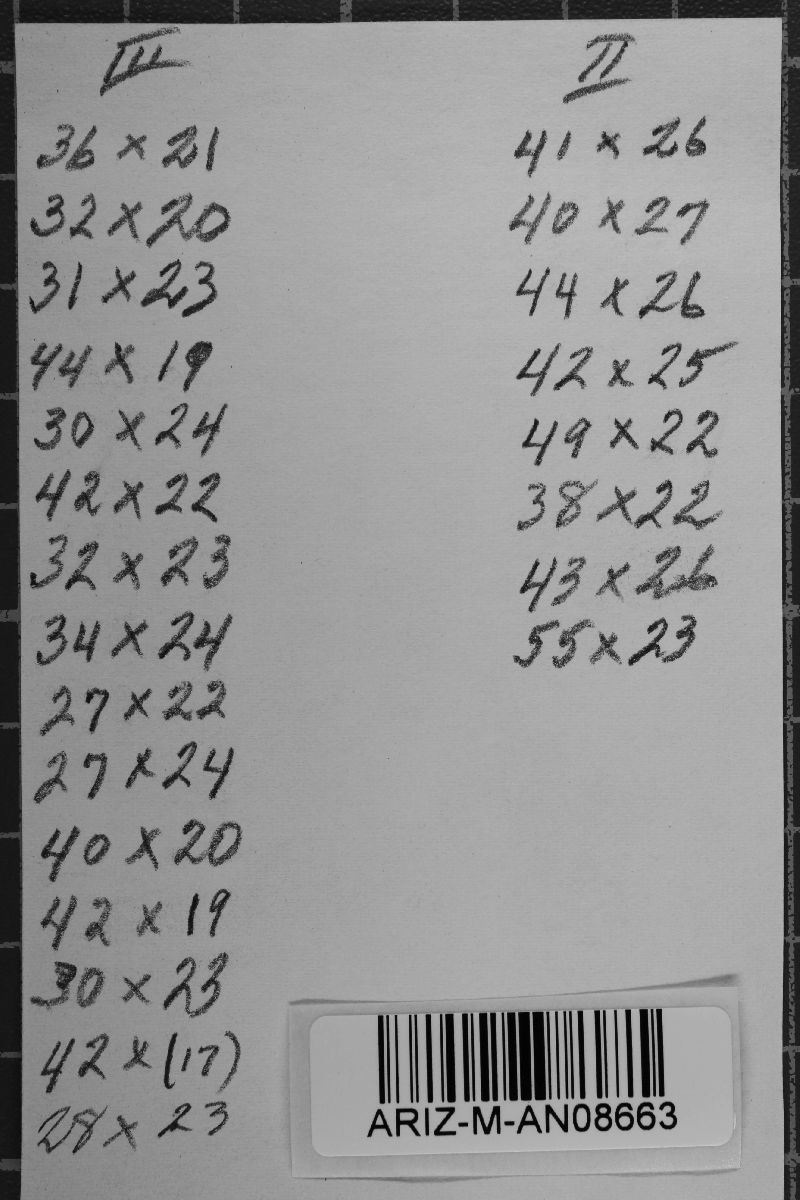 III
36 × 21
32 × 20
31 × 23
44 × 19
30 × 24
42 × 22
32 × 23
34 × 24
27 × 22
27 × 24
40 × 20
42 × 19
30 × 23
42 × (17)
28 × 23
II
41 × 26
40 × 27
44 × 26
42 × 25
49 × 22
38 × 22
43 × 26
55 × 23
ARIZ-M-AN08663